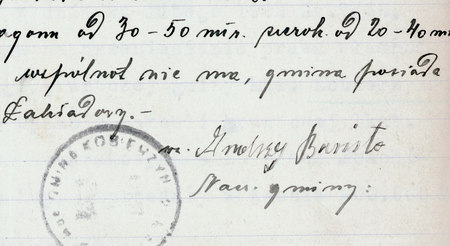 od 30-50 mtr. szerok. od 20-40 m
wspólnot nie ma, gmina posiada
Zakładowy.-
Andrzej
Nacz. gminy:
GMINA KOBIERZYN